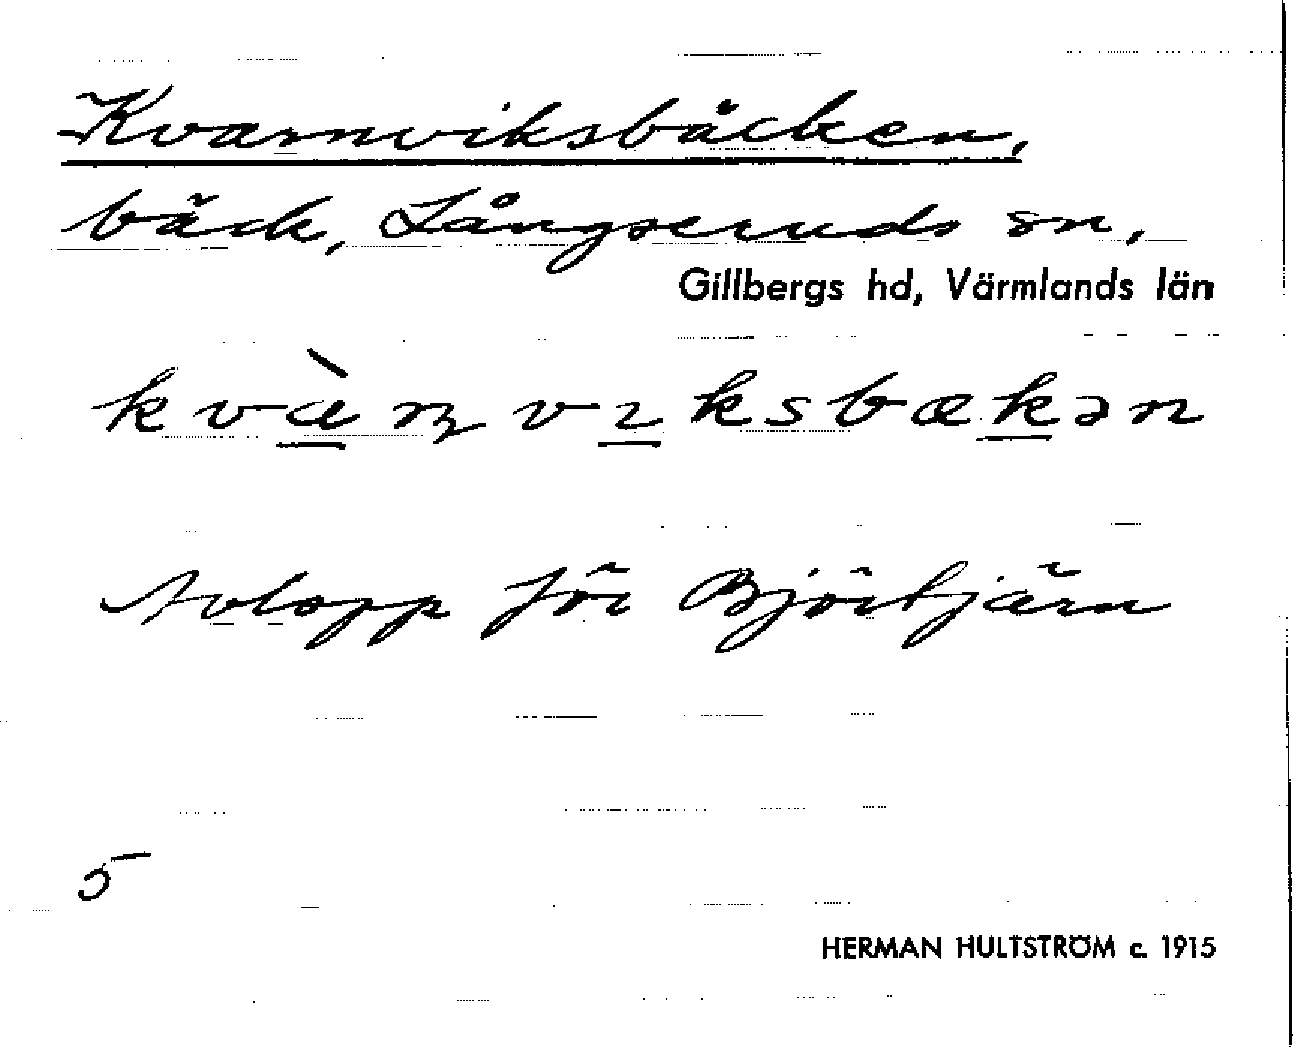 Kvarnviksbäcken,
bäck, Långseruds sn,
Gillbergs hd, Värmlands län
kvæ̀ɳvɪksbækən
Avlopp för Björtjärn
5
HERMAN HULTSTRÖM c. 1915